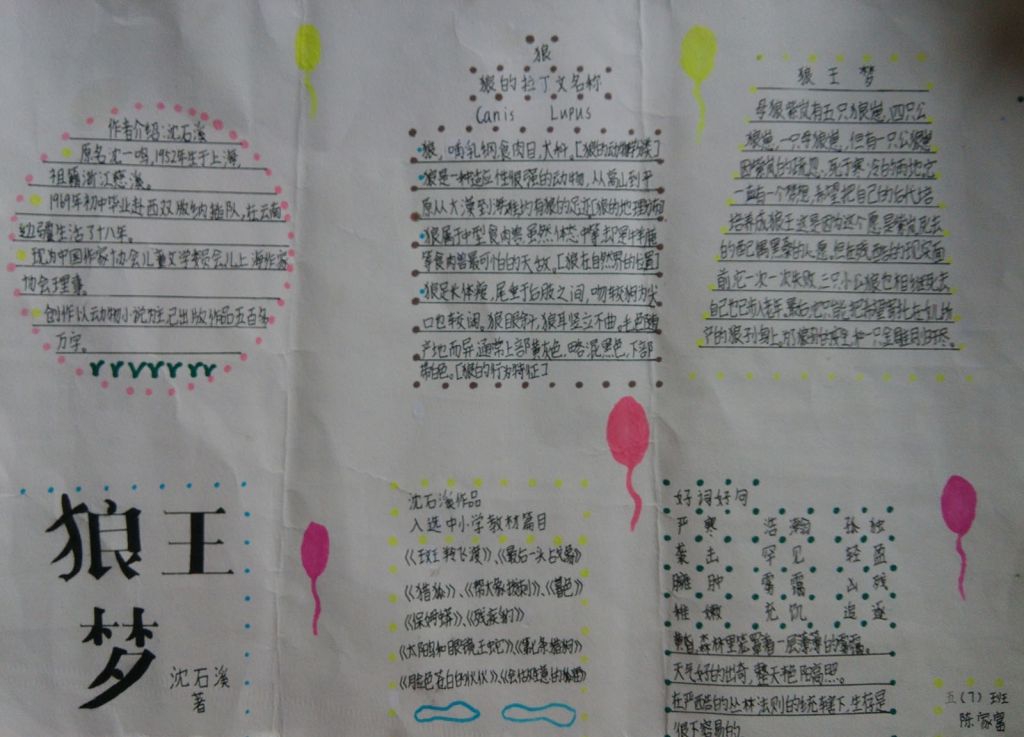 作者介绍:沈石溪
原名沈一鸣,1952年生于上海,
祖籍浙江慈溪。
1969年初中毕业赴西双版纳插队,在云南
边疆生活了十八年。
现为中国作家协会儿童文学委员会儿上海作家
协会理事。
创作以动物小说为主已出版作品五百多
万字。
狼
狼的拉丁文名称
Canis Lupus
狼,哺乳纲食肉目,犬科。[狼的动物学
狼是一种适应性很强的动物,从高山到平
原从大漠到 均有狼的足迹[狼的地理
狼属于中型食肉兽虽然体态中等却是
等食肉兽最可怕的天敌。[狼在自然界的位置]
狼足长体瘦,尾垂于后肢之间,吻较狗为尖
口也较阔。狼眼斜,狼耳竖立不曲。毛色随
产地而异通常上部黄灰色,略混黑色,下部
带白色。[狼的行为特征]
狼王梦
母狼紫岚有五只狼崽,四只公
狼崽,一只母狼崽,但有一只公狼崽
因紫岚的疏忽,死于寒冷的 它
一直有一个梦想,希望把自己的后代培
培养成狼王这是因为这个愿是紫岚死去
的配偶黑桑的心愿,但在残酷的现实面
前它一次一次失败,三只小公狼也相继死去
自己也已步入老年,最后
产的狼孙身上。
狼王
梦
沈石溪
著
沈石溪作品
入选中小学教材篇目
《斑羚飞渡》、《最后一头战象》
《猎狐》、《 》、《暮色》
《保姆蟒》、《残狼灰满》
《太阳鸟和眼镜王蛇》、《第七条猎狗》
好词好句
严寒 浩瀚 孤独
袭击 罕见 轻盈
臃肿 雾霭 凶残
稚嫩 充饥 追逐
黄昏,森林里笼罩着一层薄薄的雾霭。
天气好的出奇,整天艳阳高照。
在严酷的丛林法则的统辖下,生存是
很不容易的
五(7)班
陈家富